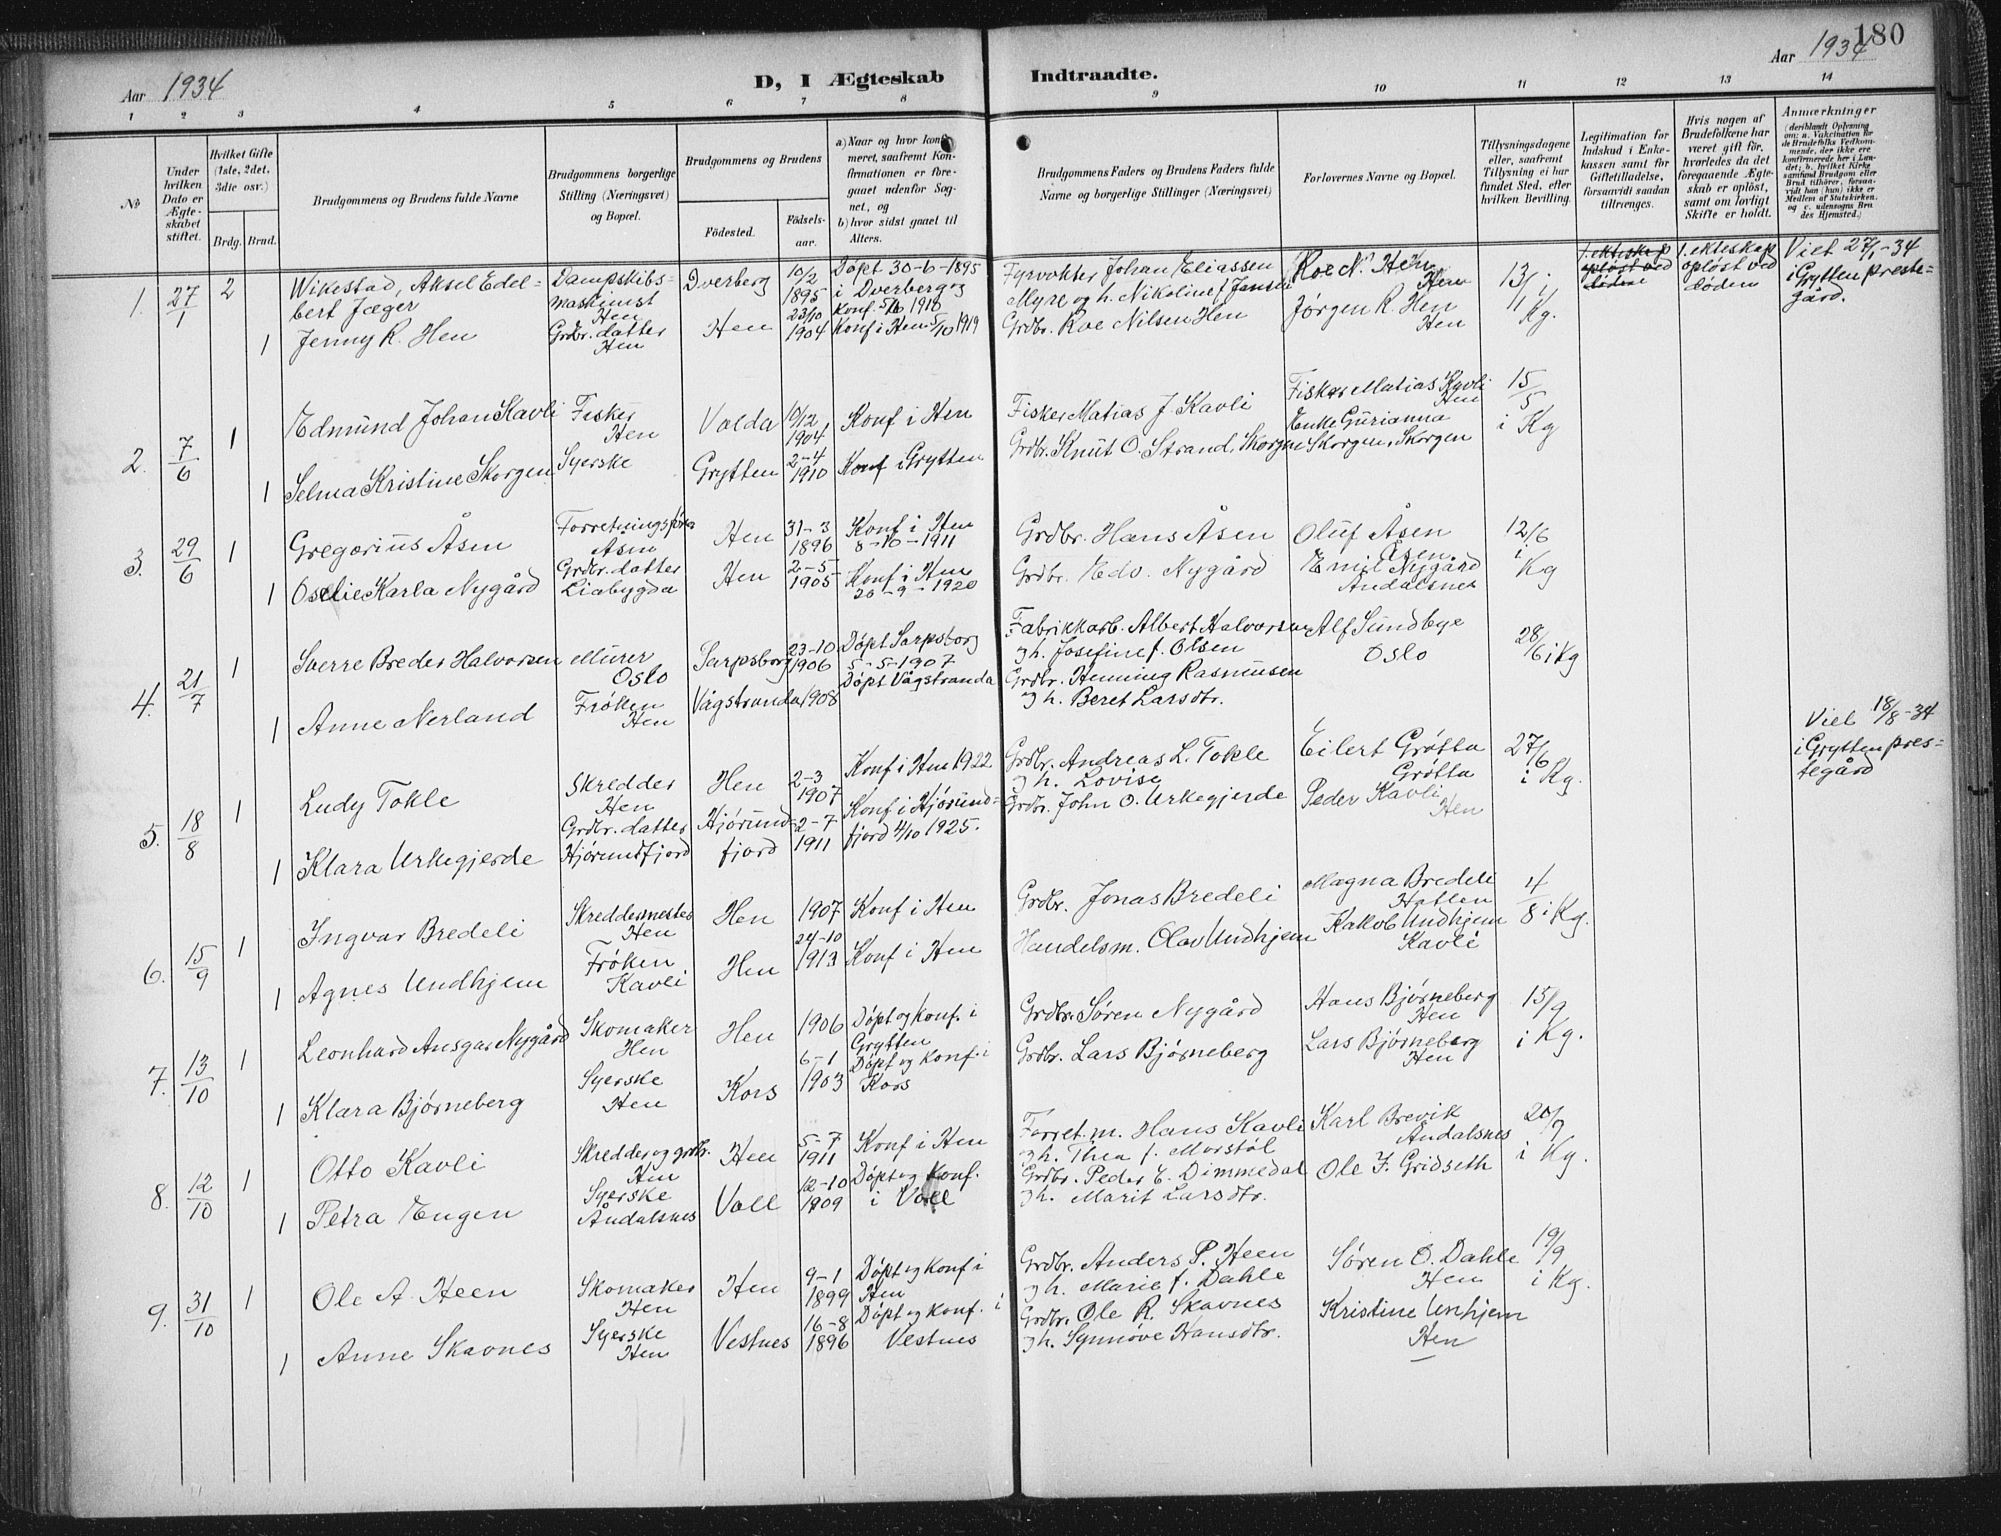 180
Aar 1934
D, I Ægteskab Indtraadte.
Aar 1934
1 2 3 4 5 6 7 8 9 10 11 12 13 14
No
Under hvilken Dato er Ægteskabet stiftet.
Hvilket Gifte (1ste, 2det, 3die osv.)
Brdg. Brud.
Brudgommens og Brudens fulde Navne
Brudgommens borgerlige Stilling (Næringsvei) og Bopæl.
Brudgommens og Brudens
Fødested. Fødselsaar.
a) Naar og hvor konfirmeret, saafremt Konfirmationen er foregaaet udenfor Sognet, og
b) hvor sidst gaaet til Alters.
Brudgommens Faders og Brudens Faders fulde Navne og borgerlige Stillinger (Næringsvei)
Forlovernes Navne og Bopæl.
Tillysningsdagene eller, saafremt Tillysning ei har fundet Sted, efter hvilken Bevilling.
Legitimation for Indskud i Enkekassen samt for Giftetilladelse, forsaavidt saadan tiltrænges.
Hvis nogen af Brudefolkene har været gift før, hvorledes da det foregaaende Ægteskab er opløst, samt om lovligt Skifte er holdt.
Anmærkninger
(deriblandt Oplysning om: a. Vakcination for de Brudefolks Vedkommende, der ikke ere konfirmerede her i Landet; b. hvilket Kirkesamfund Brudgom eller Brud tilhører, forsaavidt han (hun) ikke er Medlem af Statskirken, og c. udensogns Brudes Hjemsted.)
1. 27/1 2 Wikestad, Aksel Edelbert Jæger Dampskibsmaskinist Hen Dverberg 10/2 1895 Døpt 30-6-1895 i Dverberg og Konf 5/6 1910 Fyrvokter Johan Eliassen Myre og h. Nikoline f. Jansen Roe N. Hen Hen 13/1 i Kg. 1. ekteskap opløst ved døden 1. ekteskap opløst ved døden Viet 27/1-34 i Grytten prestegård.
1 Jenny R. Hen Grdbr. datter Hen Hen 23/10 1904 Konf i Hen 5/10 1919 Grdbr. Roe Nilsen Hen Jørgen R. Hen Hen
2. 7/6 1 Edmund Johan Kavli Fisker Hen Volda 10/12 1904 Konf i Hen Fisker Matias J. Kavli Fisker Matias Kavli Hen 15/5 i Kg
1 Selma Kristine Skorgen Syerske Grytten 2-4 1910 Konf i Grytten Grdbr. Knut O. Strand, Skorgen Enke Gurianna Skorgen, Skorgen
3. 29/6 1 Gregorius Åsen Forretningsfører Åsen Hen 31-3 1896 Konf i Hen 8-10-1911 Grdbr. Hans Åsen Oluf Åsen Åsen 12/6 i Kg
1 Oselie Karla Nygård Grdbr. datter Liabygda Hen 2-5- 1905 Konf i Hen 26-9-1920 Grdbr. Edv. Nygård Emil Nygård Andalsnes
4. 21/7 1 Sverre Breder Halvorsen Murer Oslo Sarpsborg 23-10 1906 Døpt Sarpsborg 5-5-1907 Fabrikkarb. Albert Halvorsen og h. Josefine f. Olsen Alf Sundbye Oslo 28/6 i Kg
1 Anne Nerland Frøken Hen Vågstranda 1908 Døpt Vågstranda Grdbr. Henning Rasmusen og h. Beret Larsdtr.
5. 18/8 1 Ludy Tokle Skredder Hen Hen 2-3 1907 Konf i Hen 1922 Grdbr. Andreas L. Tokle og h. Lovise Eilert Grøtta Grøtta 27/6 i Kg. Viet 18/8-34 i Grytten prestegård
1 Klara Urkegjerde Grdbr. datter Hjørundfjord Hjørundfjord 2-7 1911 Konf i Hjørundfjord 4/10 1925. Grdbr. John O. Urkegjerde Peder Kavli Hen
6. 15/9 1 Ingvar Bredeli Skreddermester Hen Hen 1907 Konf i Hen Grdbr. Jonas Bredeli Magna Bredeli Hatlen 4/8 i Kg.
1 Agnes Undhjem Frøken Kavli Hen 24-10 1913 Konf i Hen Handelsm. Olav Undhjem Kakob Undhjem Kavli
7. 13/10 1 Leonhard Ansgar Nygård Skomaker Hen Hen 1906 Døpt og Konf. i Grytten Grdbr. Søren Nygård Hans Bjørneberg Hen 15/9 i Kg.
1 Klara Bjørneberg Syerske Hen Kors 6-1 1903 Døpt og Konf. i Kors Grdbr. Lars Bjørneberg Lars Bjørneberg Hen
8. 12/10 1 Otto Kavli Skredder og grdbr. Hen Hen 5-7 1911 Konf i Hen Forret.m. Hans Kavli og h. Thea f. Morstøl Karl Brevik Åndalsnes 20/9 i Kg.
1 Petra Engen Syerske Åndalsnes Voll 12-10 1909 Døpt og Konf. i Voll Grdbr. Peder E. Dimmedal og h. Marit Larsdtr. Ole J. Gridseth
9. 31/10 1 Ole A. Heen Skomaker Hen Hen 9-1 1899 Døpt og Konf i Hen Grdbr. Anders P. Heen og h. Marie f. Dahle Søren O. Dahle Hen 19/9 i Kg.
1 Anne Skavnes Syerske Hen Vestnes 16-8 1896 Døpt og Konf. i Vestnes Grdbr. Ole R. Skavnes og h. Synnøve Hansdtr. Kristine Unhjem Hen